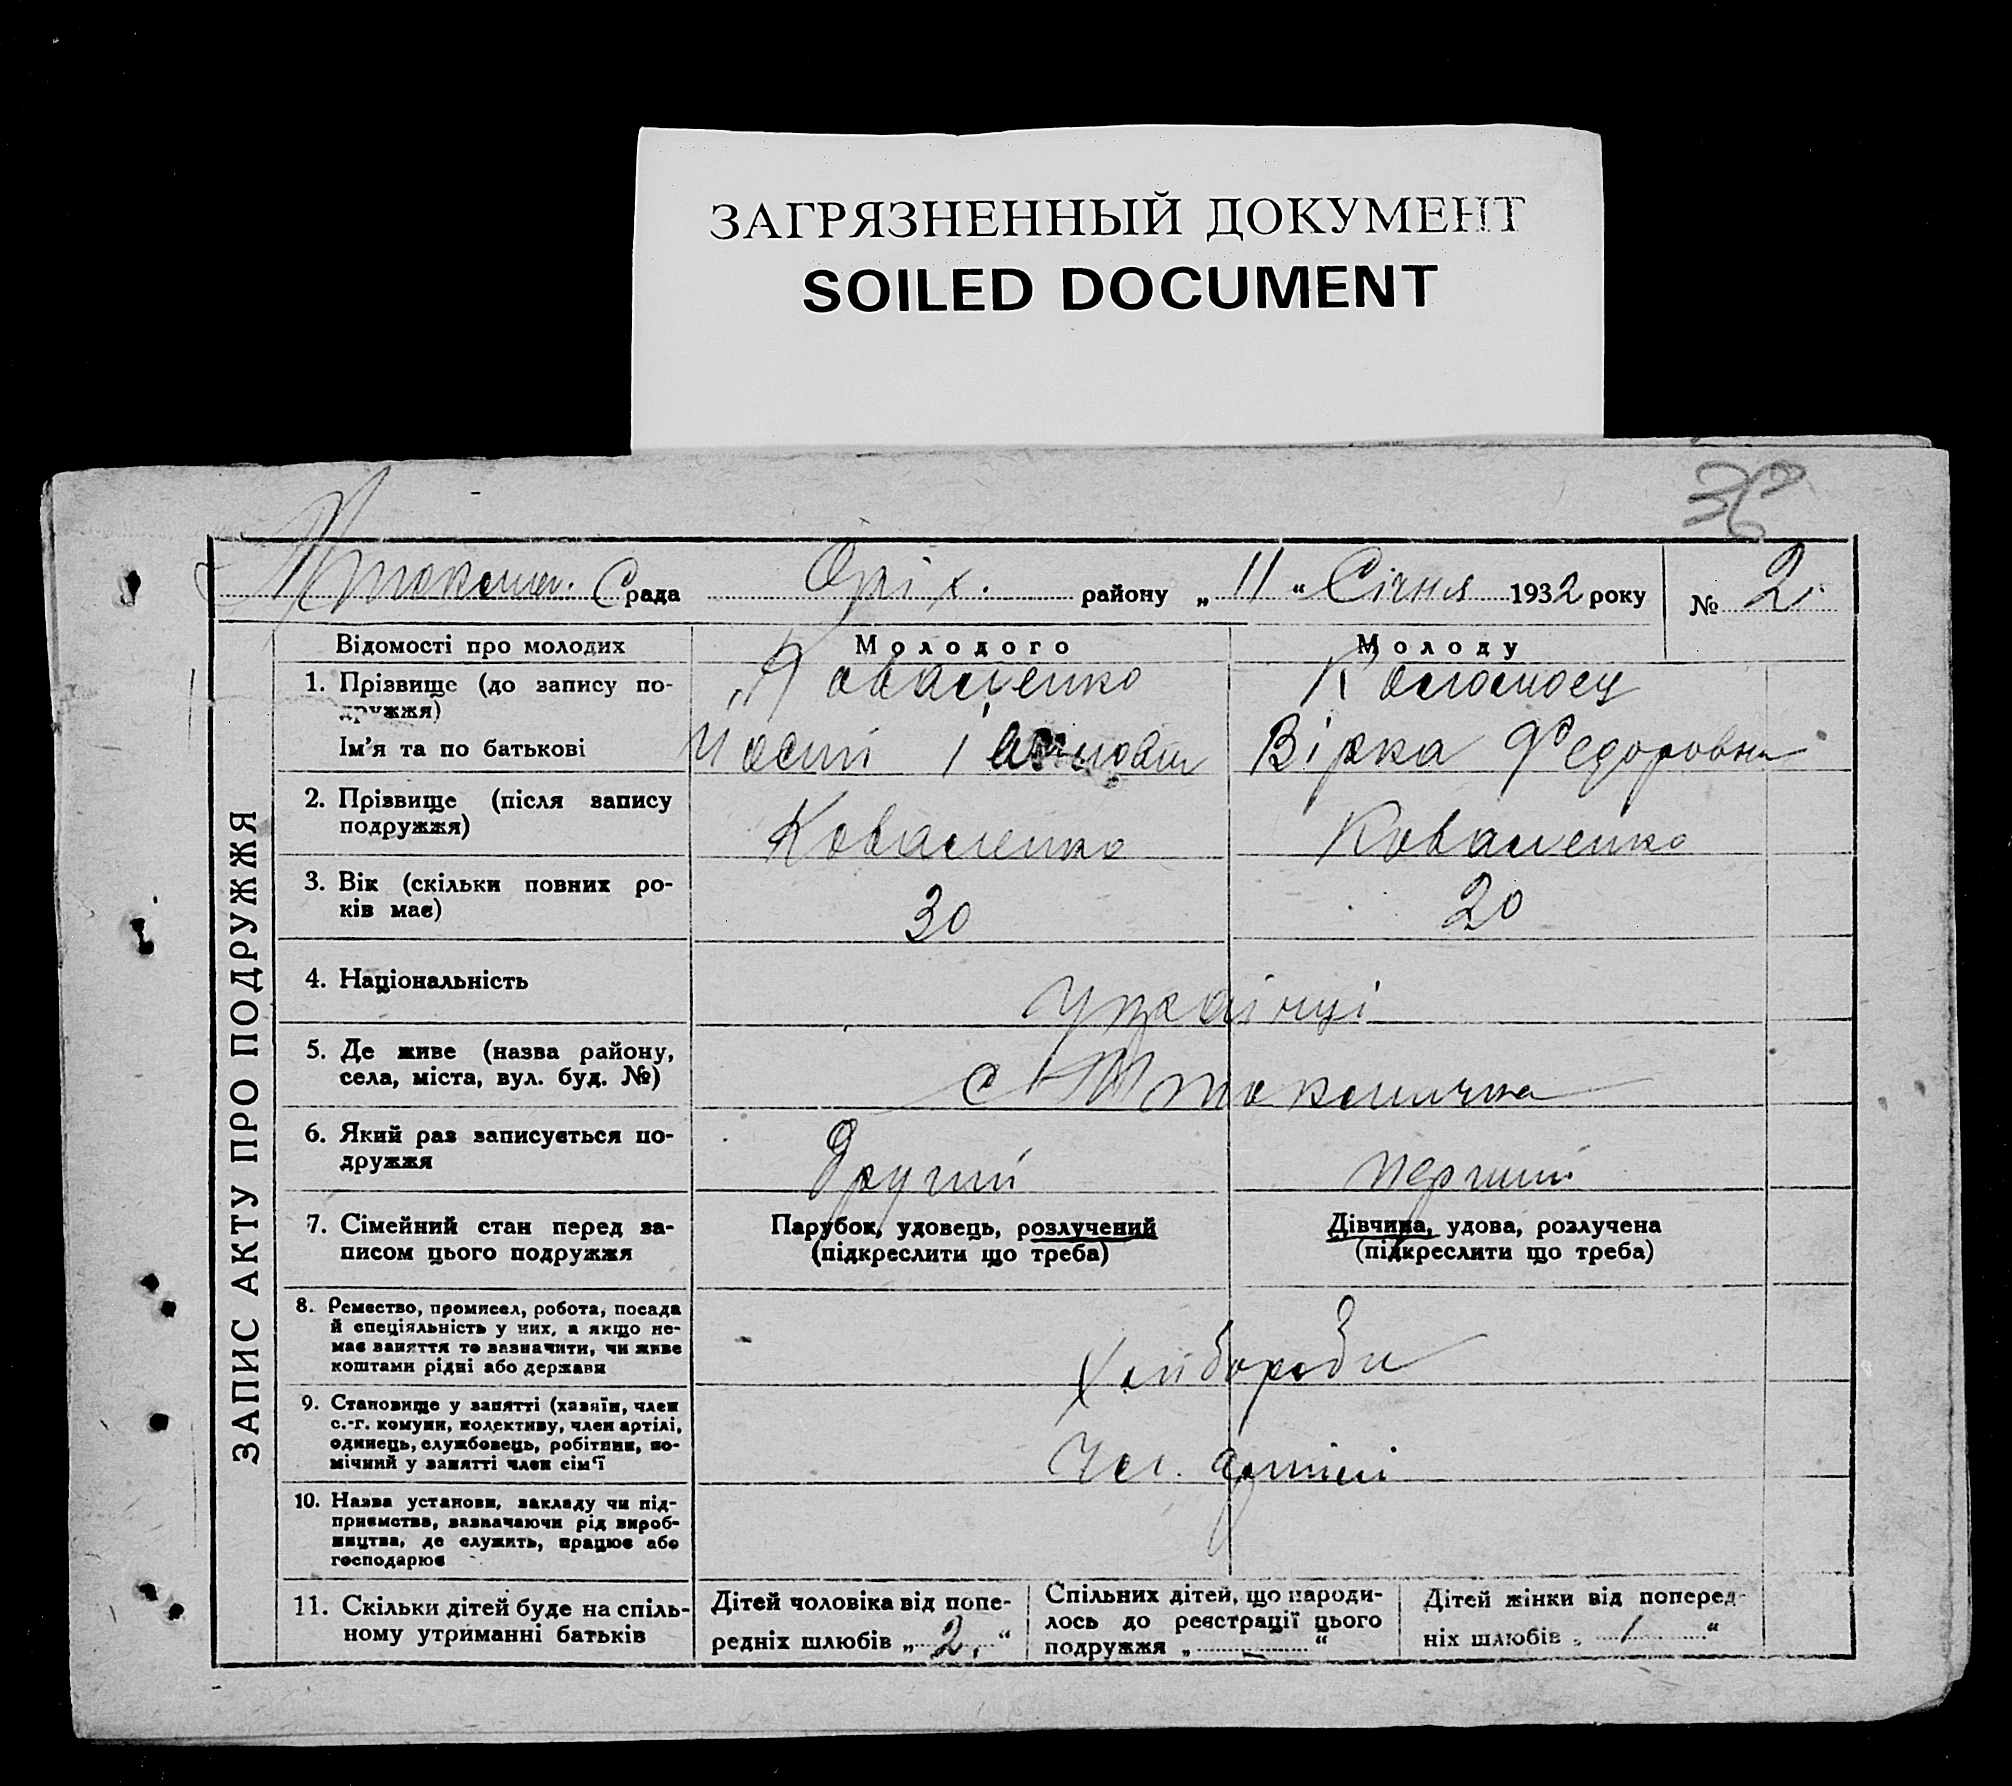 ЗАГРЯЗНЕННЫЙ ДОКУМЕНТ
SOILED DOCUMENT
Срада Оріх. району „ 11 “ Січня 1932 року № 2.
ЗАПИС АКТУ ПРО ПОДРУЖЖЯ
Відомості про молодих Молодого Молоду
1. Прізвище (до запису по-
дружжя) Коваленко Коломоец
Ім’я та по батькові Йосип Вірка Федоровна
2. Прізвище (після запису
подружжя) Коваленко Коваленко
3. Вік (скільки повних ро-
ків має) 30 20
4. Національність Українці
5. Де живе (назва району,
села, міста, вул. буд. №) с
6. Який раз записується по-
дружжя Другий перший
7. Сімейний стан перед за-
писом цього подружжя
Парубок, удовець, розлучений
(підкреслити що треба)
Дівчина, удова, розлучена
(підкреслити що треба)
8. Ремество, промисел, робота, посада
й спеціяльність у них, а якщо не-
має заняття то зазначити, чи живе
коштами рідні або держави
Хлібороби
9. Становище у занятті (хазяїн, член
с.-г. комуни, колективу, член артілі,
одинець, службовець, робітник, по-
мічний у занятті член сім‘ї
Чл. артілі
10. Назва установи, закладу чи під-
приємства, зазначаючи рід вироб-
ництва, де служить, працює або
господарює
11. Скільки дітей буде на спіль-
ному утриманні батьків
Дітей чоловіка від попе-
редніх шлюбів „ 2. “
Спільних дітей, що народи-
лось до реєстрації цього
подружжя „ “
Дітей жінки від поперед-
ніх шлюбів „ 1 “